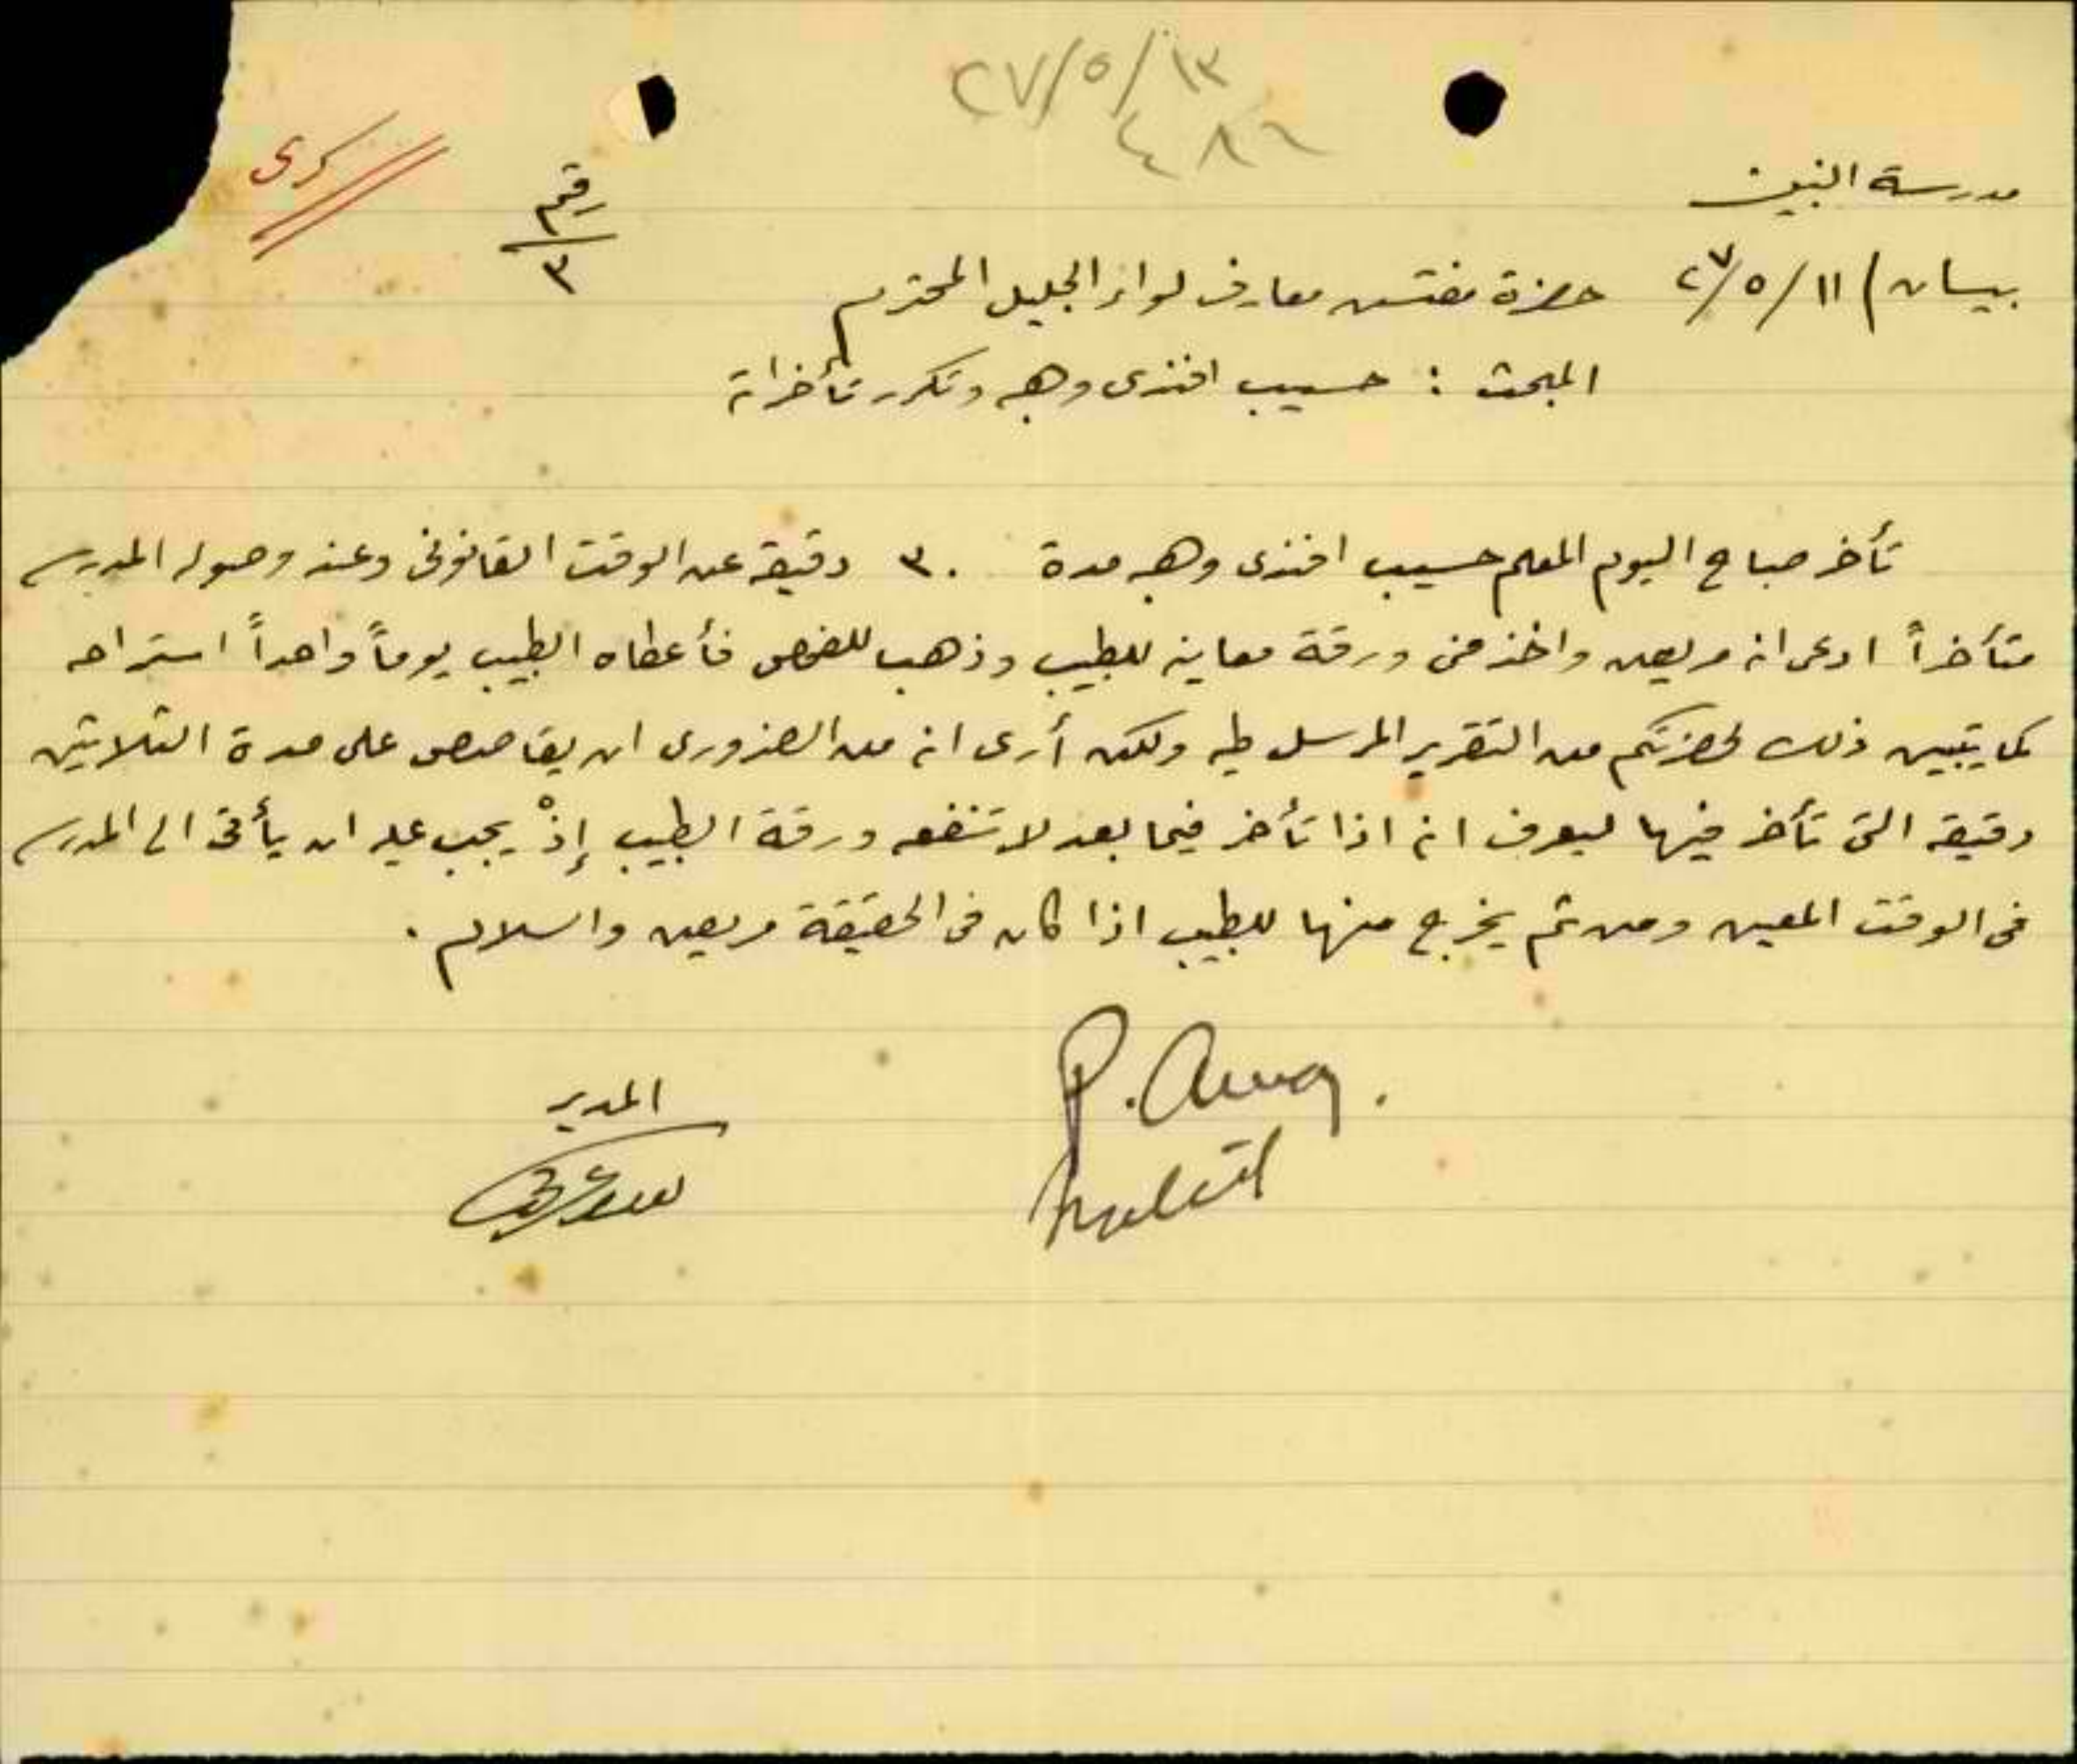 ٢٧/٥/١٣
٤٨٦
سرى
رقم
٣
مدرسة البنين
بيسان ) ٢٧/٥/١١
حضرة مفتش معارف لواء الجليل المحترم
المبحث : حسيب افندى وهبه وتكرر تأخراته
تأخر صباح اليوم المعلم حسيب افندى وهبه مدة ٣٠ دقيقة عن الوقت القانونى وعند وصوله المدرسه
متأخراً ادعى انه مريض واخذ منى ورقة معاينه للطبيب وذهب للفحص فأعطاه الطبيب يوماً واحداً استراحه
كما يتبين ذلك لحضرتكم من التقرير المرسل طيه ولكن أرى انه من الضرورى ان يقاصص على مدة الثلاثين
دقيقه التى تأخر فيها ليعرف انه اذا تأخر فيما بعد لا تنفعه ورقة الطبيب إذْ يجب عليه ان يأتى الى المدرسه
فى الوقت المعين ومن ثم يخرج منها للطبيب اذا كان فى الحقيقة مريض والسلام .
المدير
P.